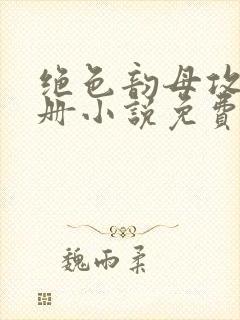 绝色韵母攻
册小説免費
魏雨柔